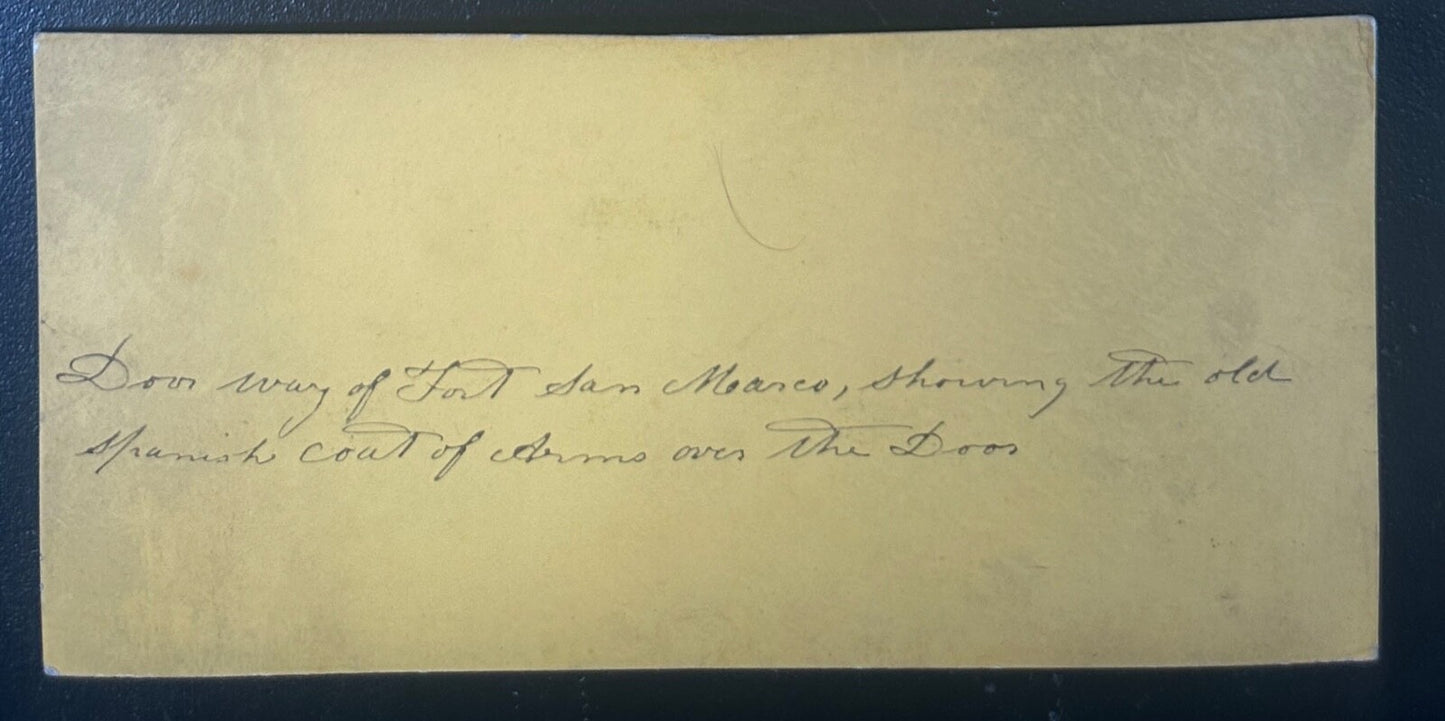 Door way of Fort San Marco, showing the old
Spanish coat of Arms over the Door